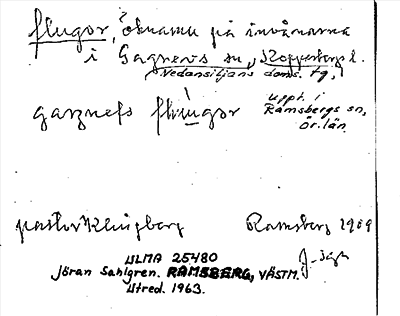 flugor, öknamn på invånarna
i Gagnevs sn, Kopparbergs l.
Nedansiljans doms. fg,
gagnefs flugor
uppt. i
Ramsbergs sn,
Ör. län.
pastor Klingberg Ramsberg 1909
ULMA 25480
Jöran Sahlgren. RAMSBERG, VÄSTM.
Utred. 1963.